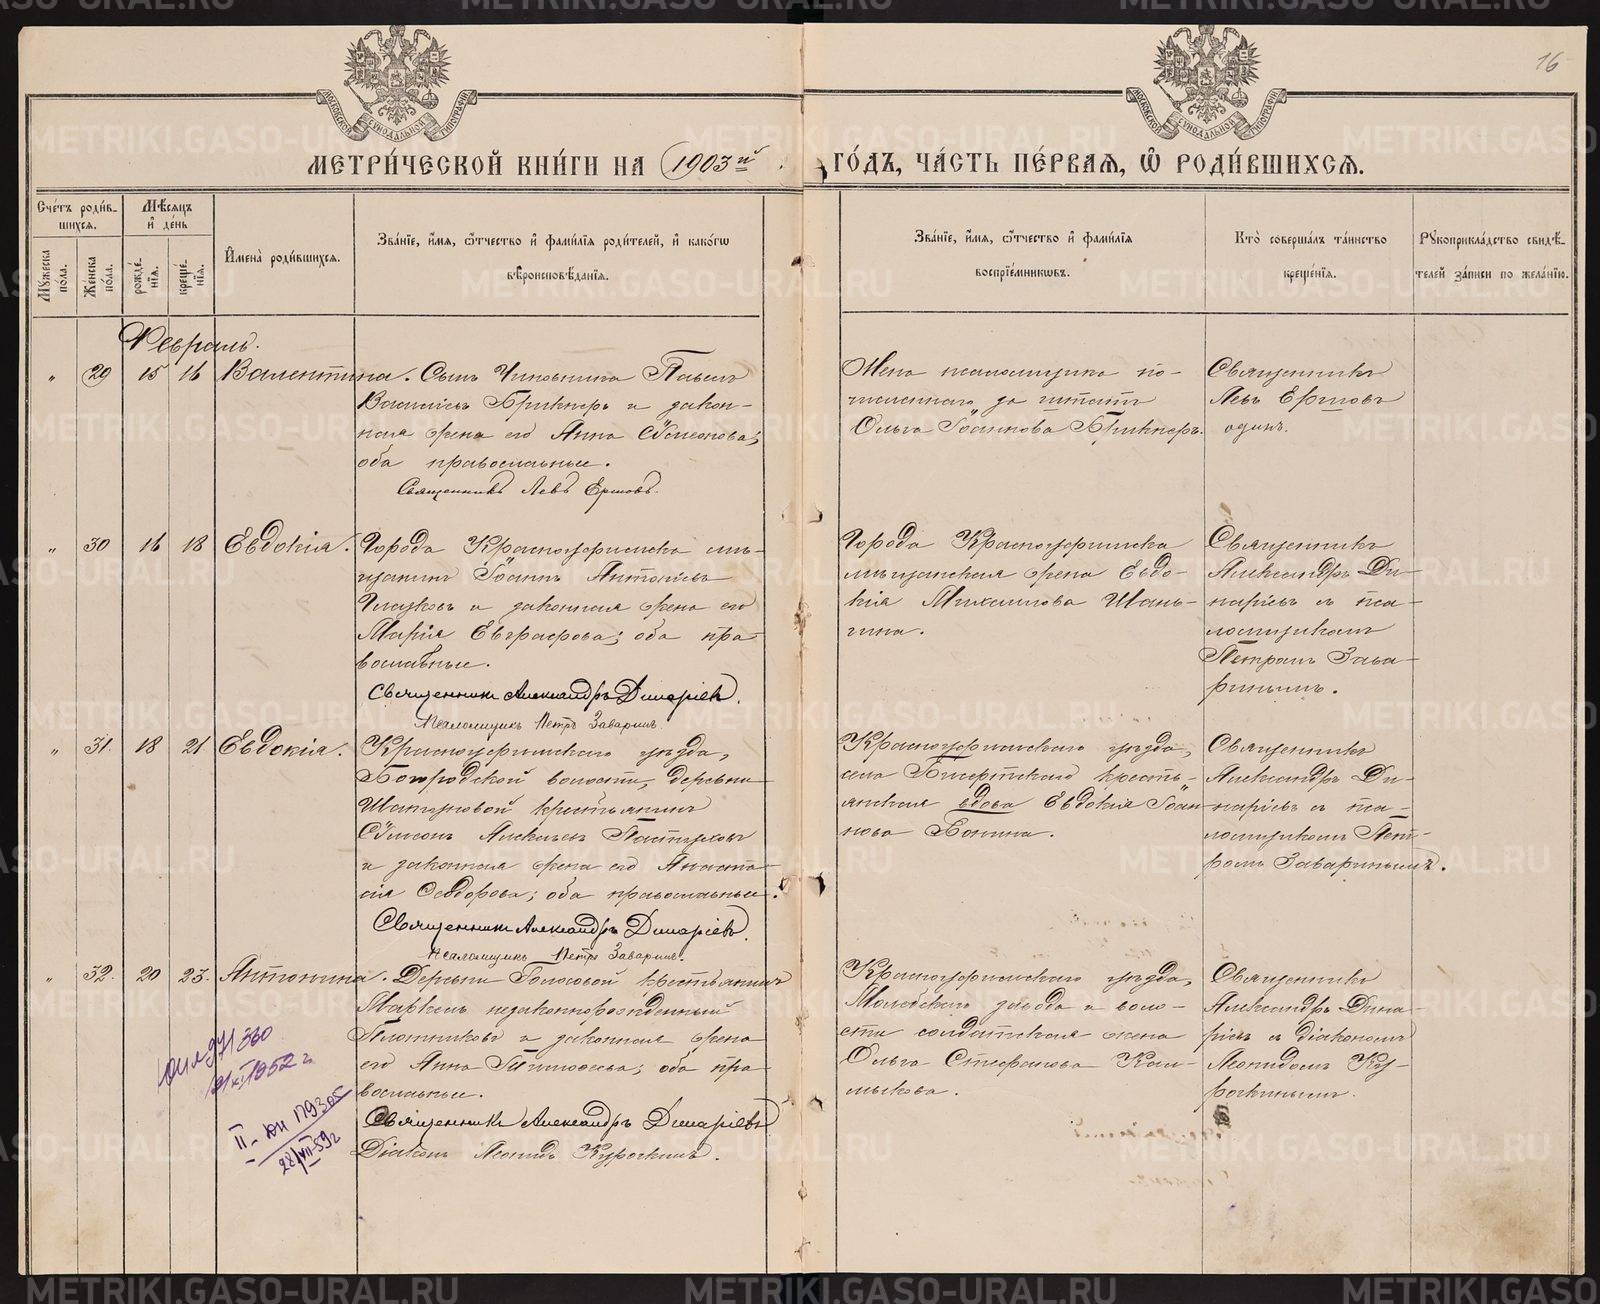 16
МОСКОВСКОЙ СѴНОДАЛЬНОЙ ТИПОГРАФІИ
МОСКОВСКОЙ СѴНОДАЛЬНОЙ ТИПОГРАФІИ
МЕТРИ́ЧЕСКОЙ КНИ́ГИ НА 1903й ГО́ДЪ, ЧА́СТЬ ПЕ́РВАѦ, Ѡ҆ РОДИ́ВШИХСѦ.
Сче́тъ роди́в-
шихсѧ.
Мѣ́сѧцъ
и҆ де́нь
Му́жеска
по́ла.
Же́нска
по́ла.
рожде́-
нїѧ.
креще́-
нїѧ.
И҆мена̀ роди́вшихсѧ.
Зва́нїе, и҆́мѧ, ѻ҆́тчество и҆ фами́лїѧ роди́телей, и҆ како́гѡ
вѣроисповѣ́данїѧ.
Зва́нїе, и҆́мѧ, ѻ҆́тчество и҆ фами́лїѧ
воспрїе́мникѡвъ.
Кто̀ соверша́лъ та́инство
креще́нїѧ.
Рꙋкоприкла́дство свидѣ́-
телей за́писи по жела́нїю.
Февраль.
" 29 15 16 Валентина.
Сынъ Чиновника Павелъ
Васильевъ Брикнеръ и закон-
ная жена его Анна Сѵмеонова;
оба православные.
Священникъ Левъ Ершовъ.
Жена псаломщика по-
численнаго за штатъ
Ольга Іоаннова Брикнеръ.
Священникъ
Левъ Ершовъ
одинъ.
" 30 16 18 Евдокія.
Города Красноуфимска мѣ-
щанинъ Іоаннъ Антоніевъ
Глазковъ и законная жена его
Марія Евграфова; оба пра-
вославные.
Священникъ Александръ Динаріевъ.
Псаломщикъ Петръ Заваринъ
Города Красноуфимска
мѣщанская жена Евдо-
кія Михаилова Шань-
гина.
Священникъ
Александръ Ди-
наріевъ съ пса-
ломщикомъ
Петромъ Зава-
ринымъ.
" 31. 18 21 Евдокія.
Красноуфимскаго уѣзда,
Богородской волости, деревни
крестьянинъ
Сѵмеонъ Алексѣевъ Пастуховъ
и законная жена его Анаста-
сія Ѳеодорова; оба православные.
Священникъ Александръ Динаріевъ.
Псаломщикъ Петръ Заваринъ.
Красноуфимскаго уѣзда,
села Бисертскаго кресть-
янская вдова Евдокія Іоан-
нова Бонина.
Священникъ
Александръ Ди-
наріевъ съ пса-
ломщикомъ Пет-
ромъ Заваринымъ.
" 32. 20 23. Антонина.
Деревни Голосовой крестьянинъ
незаконнорожденный
Плотниковъ и законная жена
его Анна Тимоѳеева; оба пра-
вославные.
Священникъ Александръ Динаріевъ
Діаконъ Леонидъ Курочкинъ.
Красноуфимскаго уѣзда,
Молебскаго завода и воло-
сти солдатская жена
Ольга Стефанова Кал-
мыкова.
Священникъ
Александръ Дина-
ріевъ съ діакономъ
Леонидомъ Ку-
рочкинымъ.
1952 г
II-ЮИ 179305
28/VII-59г
METRIKI.GASO-URAL.RU